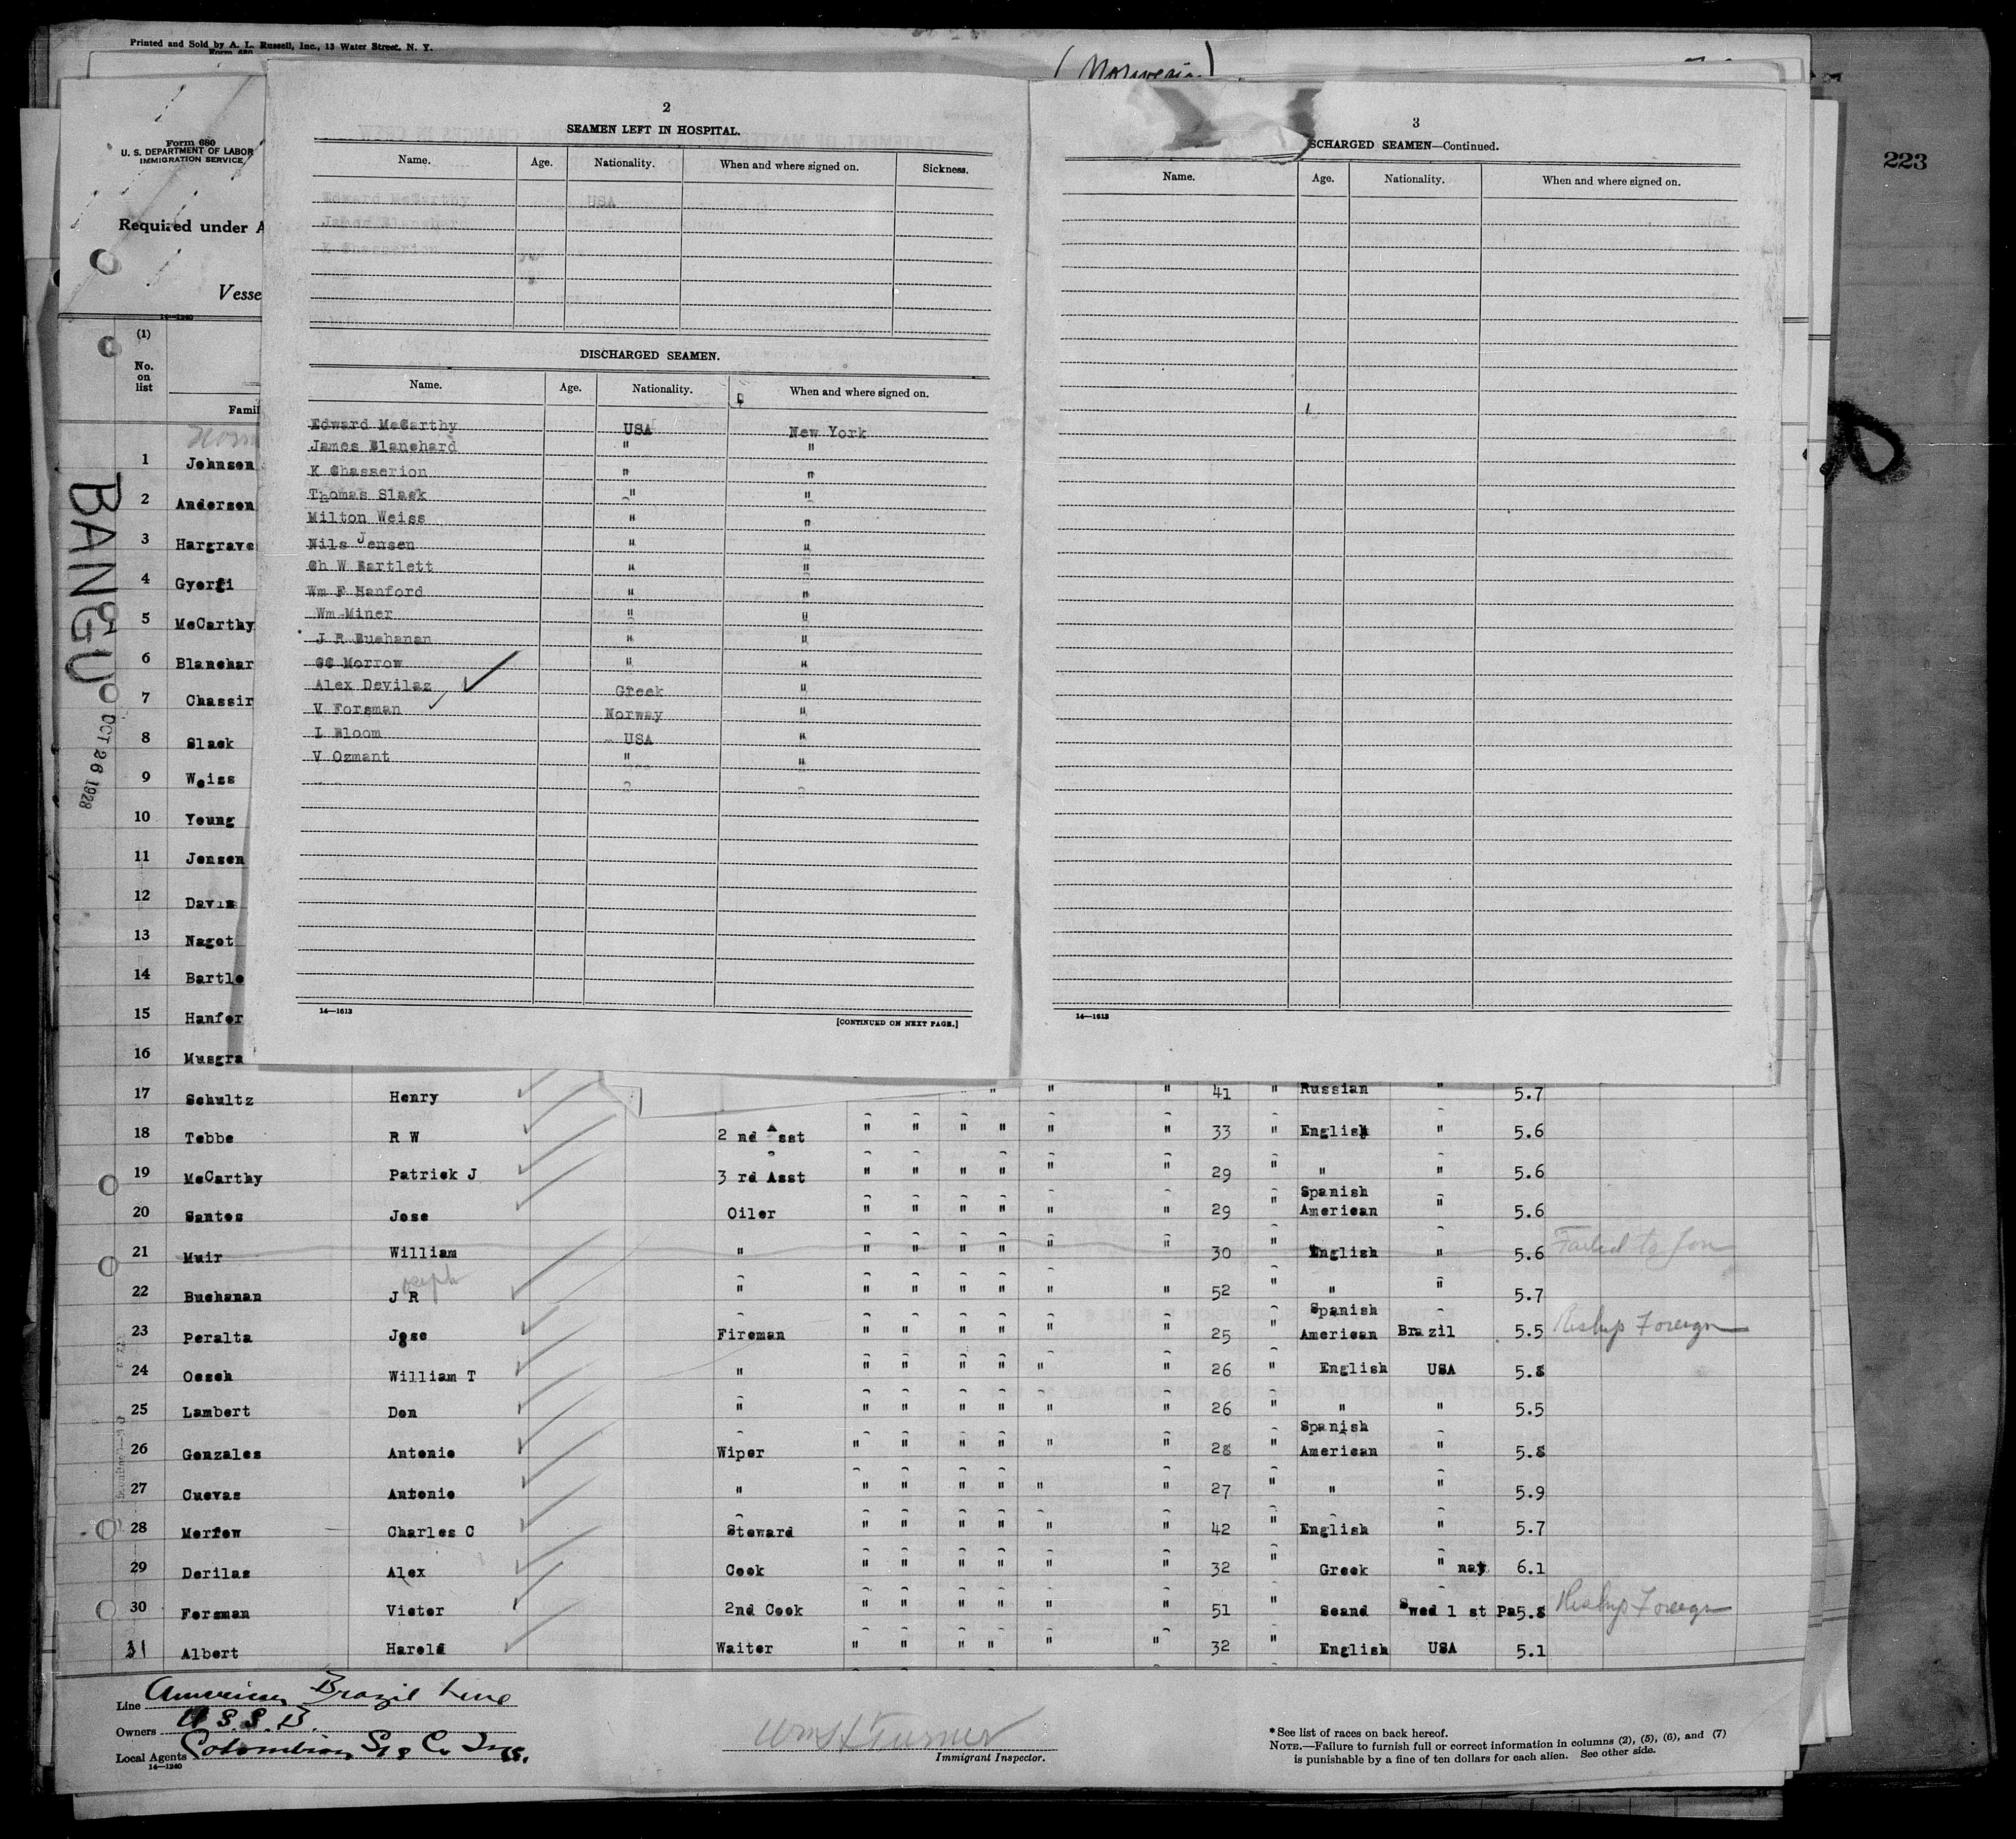 Printed and Sold by A. L. Russell, Inc., 13 Water Street, N. Y.
Form 680
U. S. DEPARTMENT OF LABOR
IMMIGRATION SERVICE
Required under A
Vesse
14—1240
(1)
No.
on
list
Famil
223
BANGU
OCT 26 1928
2
SEAMEN LEFT IN HOSPITAL.
Name. Age. Nationality. When and where signed on. Sickness.
Edward McCarthy USA
James Blanchard
K Chasserion
DISCHARGED SEAMEN.
Name. Age. Nationality. When and where signed on.
Edward McCarthy USA New York
James Blanchard " "
K Chasserion " "
Thomas Slack " "
Milton Weiss " "
Nils Jensen " "
Ch W Bartlett " "
Wm F Hanford " "
Wm Miner " "
J R Buchanan " "
CC Morrow " "
Alex Devilas Greek "
V Forsman Norway "
L Bloom USA "
V Ozmant " "
14—1613
[CONTINUED ON NEXT PAGE.]
3
SCHARGED SEAMEN—Continued.
Name. Age. Nationality. When and where signed on.
14—1613
1 Johnson
2 Anderson
3 Hargrave
4 Gyorfi
5 McCarthy
6 Blanchar
7 Chassir
8 Slack
9 Weiss
10 Young
11 Jensen
12 Davis
13 Nagot
14 Bartle
15 Hanfor
16 Musgra
17 Schultz Henry " " " 41 " Russian " 5.7
18 Tebbe R W 2 nd Asst " " " " " " 33 " English " 5.6
19 McCarthy Patrick J 3 rd Asst " " " " " " 29 " " " 5.6
20 Santos Jose Oiler " " " " " " 29 " Spanish American " 5.6
21 Muir William " " " " " " " 30 " English " 5.6 Failed to Join
22 Buchanan J R oseph " " " " " " " 52 " " " 5.7
23 Peralta Jose Fireman " " " " " " 25 " Spanish American Brazil 5.5 Reship Foreign
24 Oesch William T " " " " " " " 26 " English USA 5.8
25 Lambert Don " " " " " " " 26 " " " 5.5
26 Gonzales Antonio Wiper " " " " " " 28 " Spanish American " 5.8
27 Cuevas Antonio " " " " " " " 27 " " " 5.9
28 Morrow Charles C Steward " " " " " " 42 " English " 5.7
29 Derilas Alex Cook " " " " " " 32 " Greek " nat 6.1
30 Forsman Victor 2nd Cook " " " " " " 51 " Scand Swed 1 st Pa 5.8 Reship Foreign
31 Albert Harold Waiter " " " " " " 32 " English USA 5.1
Line American Brazil Line
Owners U S. S. B.
Local Agents Colombian SS Co Inc.
14—1240
Wm H Turner
Immigrant Inspector.
* See list of races on back hereof.
NOTE.—Failure to furnish full or correct information in columns (2), (5), (6), and (7)
is punishable by a fine of ten dollars for each alien. See other side.